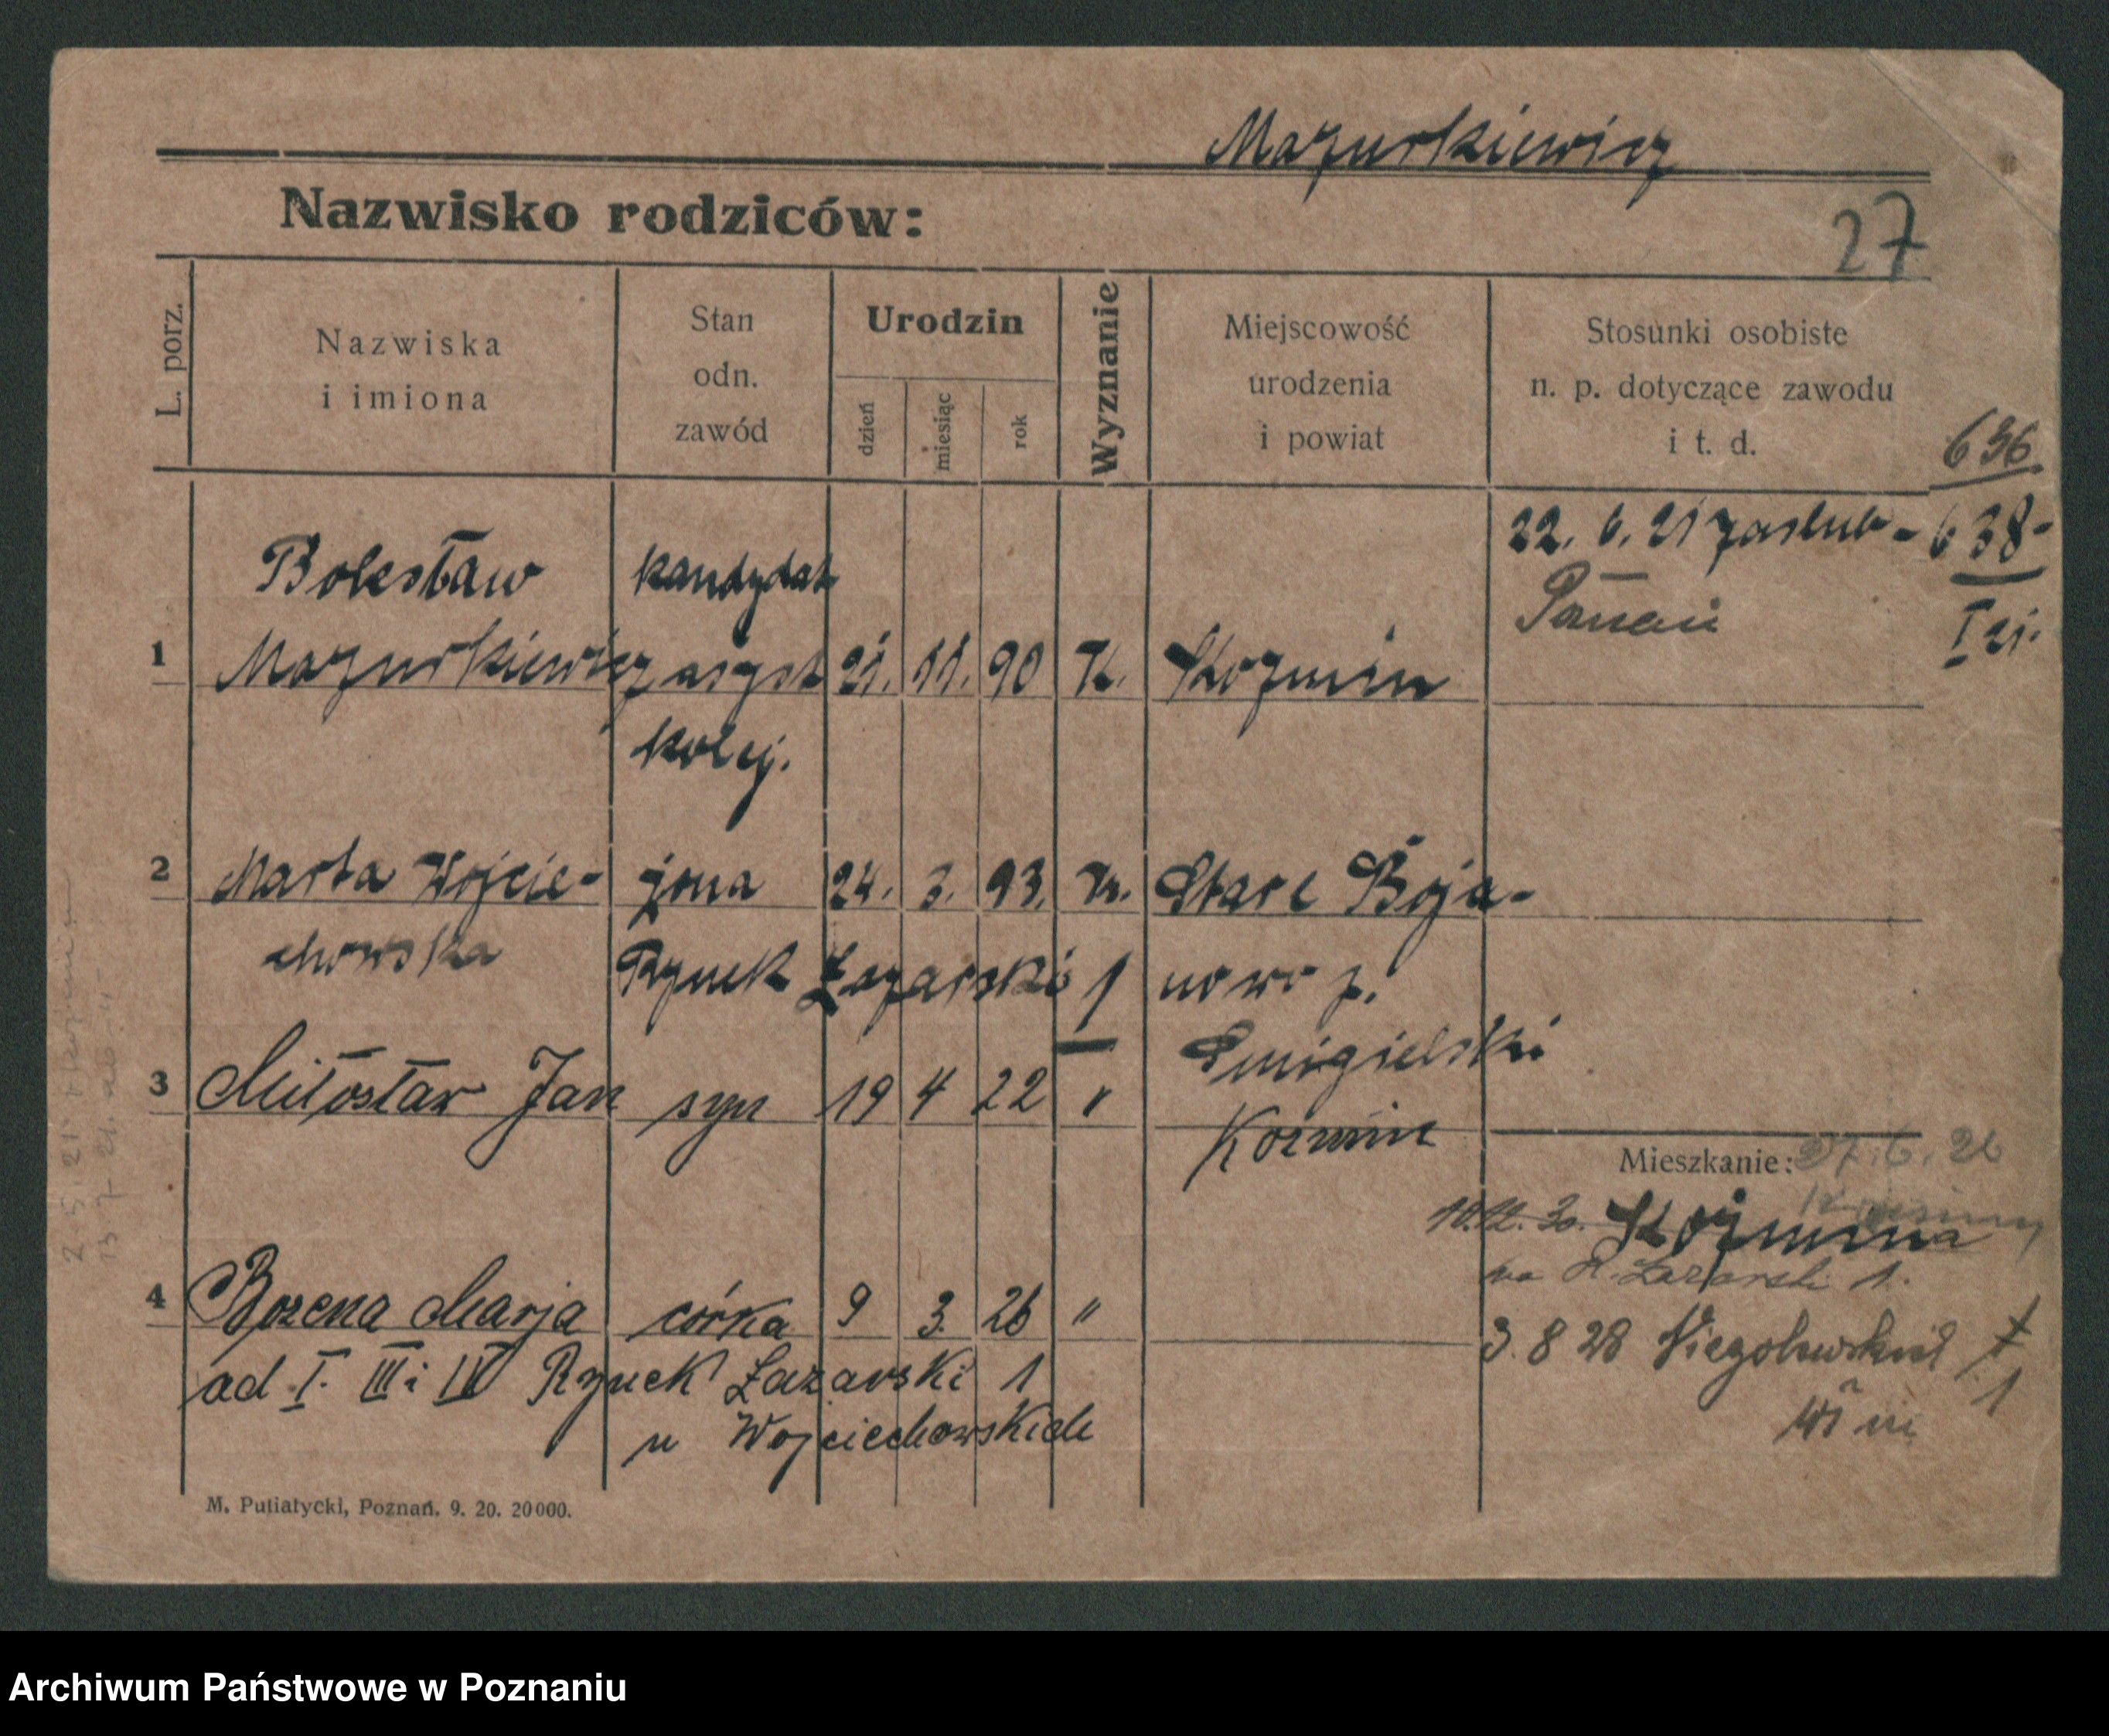 Mazurkiewicz
Nazwisko rodziców:
27
L. porz.
Nazwiska
i imiona
Stan
odn.
zawód
Urodzin
dzień
miesiąc
rok
Wyznanie
Miejscowość
urodzenia
i powiat
Stosunki osobiste
n. p. dotyczące zawodu
i t. d.
636
22. 6. 21 zaślub - 638-
Poznań
I 21.
Bolesław kandydat
1 Mazurkiewicz asyst 21. 11. 90 K. Kozmin
kolej.
2 Marta Wojcie- żona 24. 3. 93. K. Stare Boja-
chowska Rynek Łazarski 1 nowo p.
Smigielski
3 Miłosław Jan syn 19 4 22 "
Kozmin
Mieszkanie: 27. 6. 26
10.12. 20. Kozmina
na R. Lazarski 1.
4 Bozena Marja córka 9 3. 26 "
3. 8 28 1
ad I. III i IV Rynek Łazarski 1
u Wojciechowskich
M. Putiatycki, Poznań. 9. 20. 20000.
Archiwum Państwowe w Poznaniu